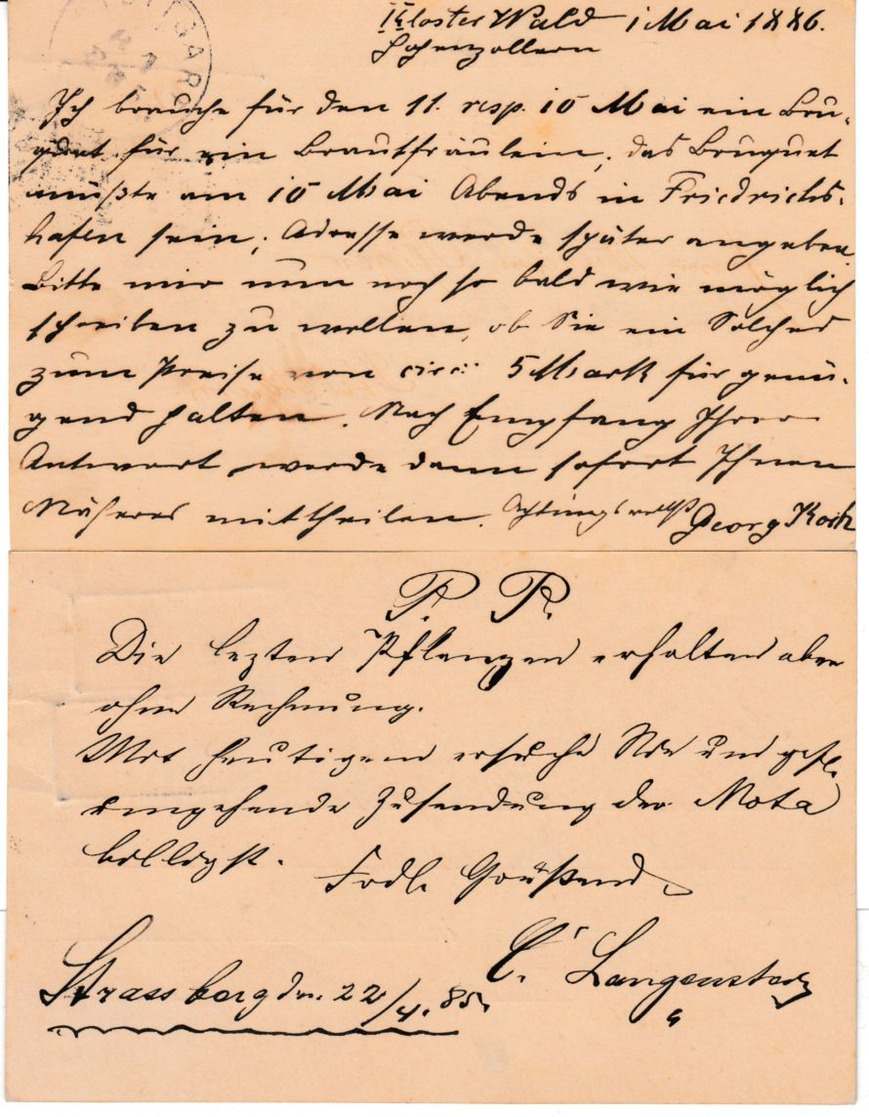 TTGAR
Kloster Wald 1 Mai 1886.
Hohenzollern
Ich brauche für den 11. resp. 10 Mai ein Bou-
quet für ein Brautfräulein, das Bouquet
müßte am 10 Mai Abends in Friedrichs-
hafen sein; Adresse werde später angeben.
Bitte mir nun noch so bald wie möglich
schreiben zu wollen, ob Sie ein Solches
zum Preise von circa 5 Mark für genü-
gend halten. Nach Empfang Ihrer
Antwort werde dann sofort Ihnen
Näheres mittheilen. Achtungsvollst Georg Koch
P. P.
Die lezten Pflanzen erhalten aber
ohne Rechnung.
Mit heutigem ersuche Sie um gefl.
umgehende Zusendung der Nota
billigst.
Frdl. Grüßend
C. Langenstein
Strassberg dn. 22/4. 85.